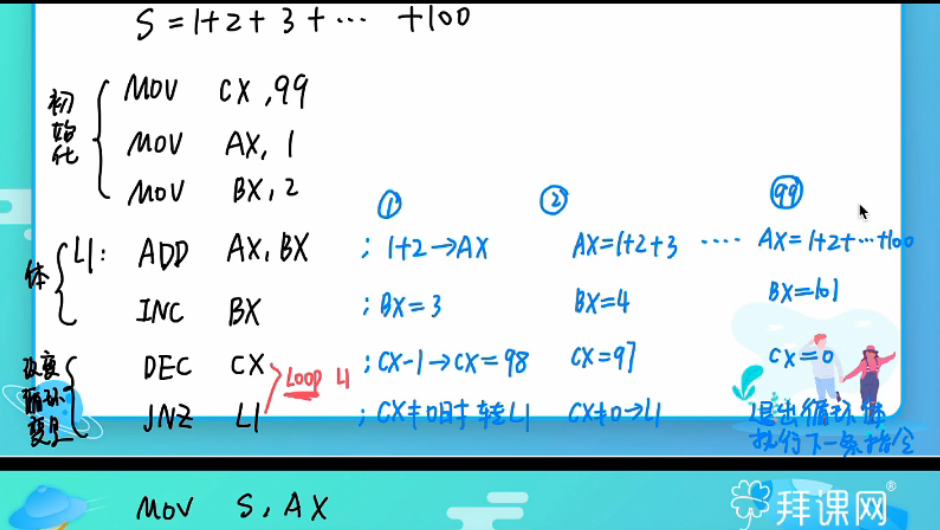 S = 1+2+3+… +100
初始化
MOV CX,99
MOV AX,1
MOV BX,2
① ② 99
体 L1: ADD AX,BX ;1+2→AX AX=1+2+3 …. AX=1+2+…+100
INC BX ;BX=3 BX=4 BX=101
改变循环变量
DEC CX ;CX-1→CX=98 CX=97 CX=0
LOOP L1
JNZ L1 ;CX≠0时转L1 CX≠0→L1 退出循环体
执行下一条指令
MOV S,AX
拜课网®